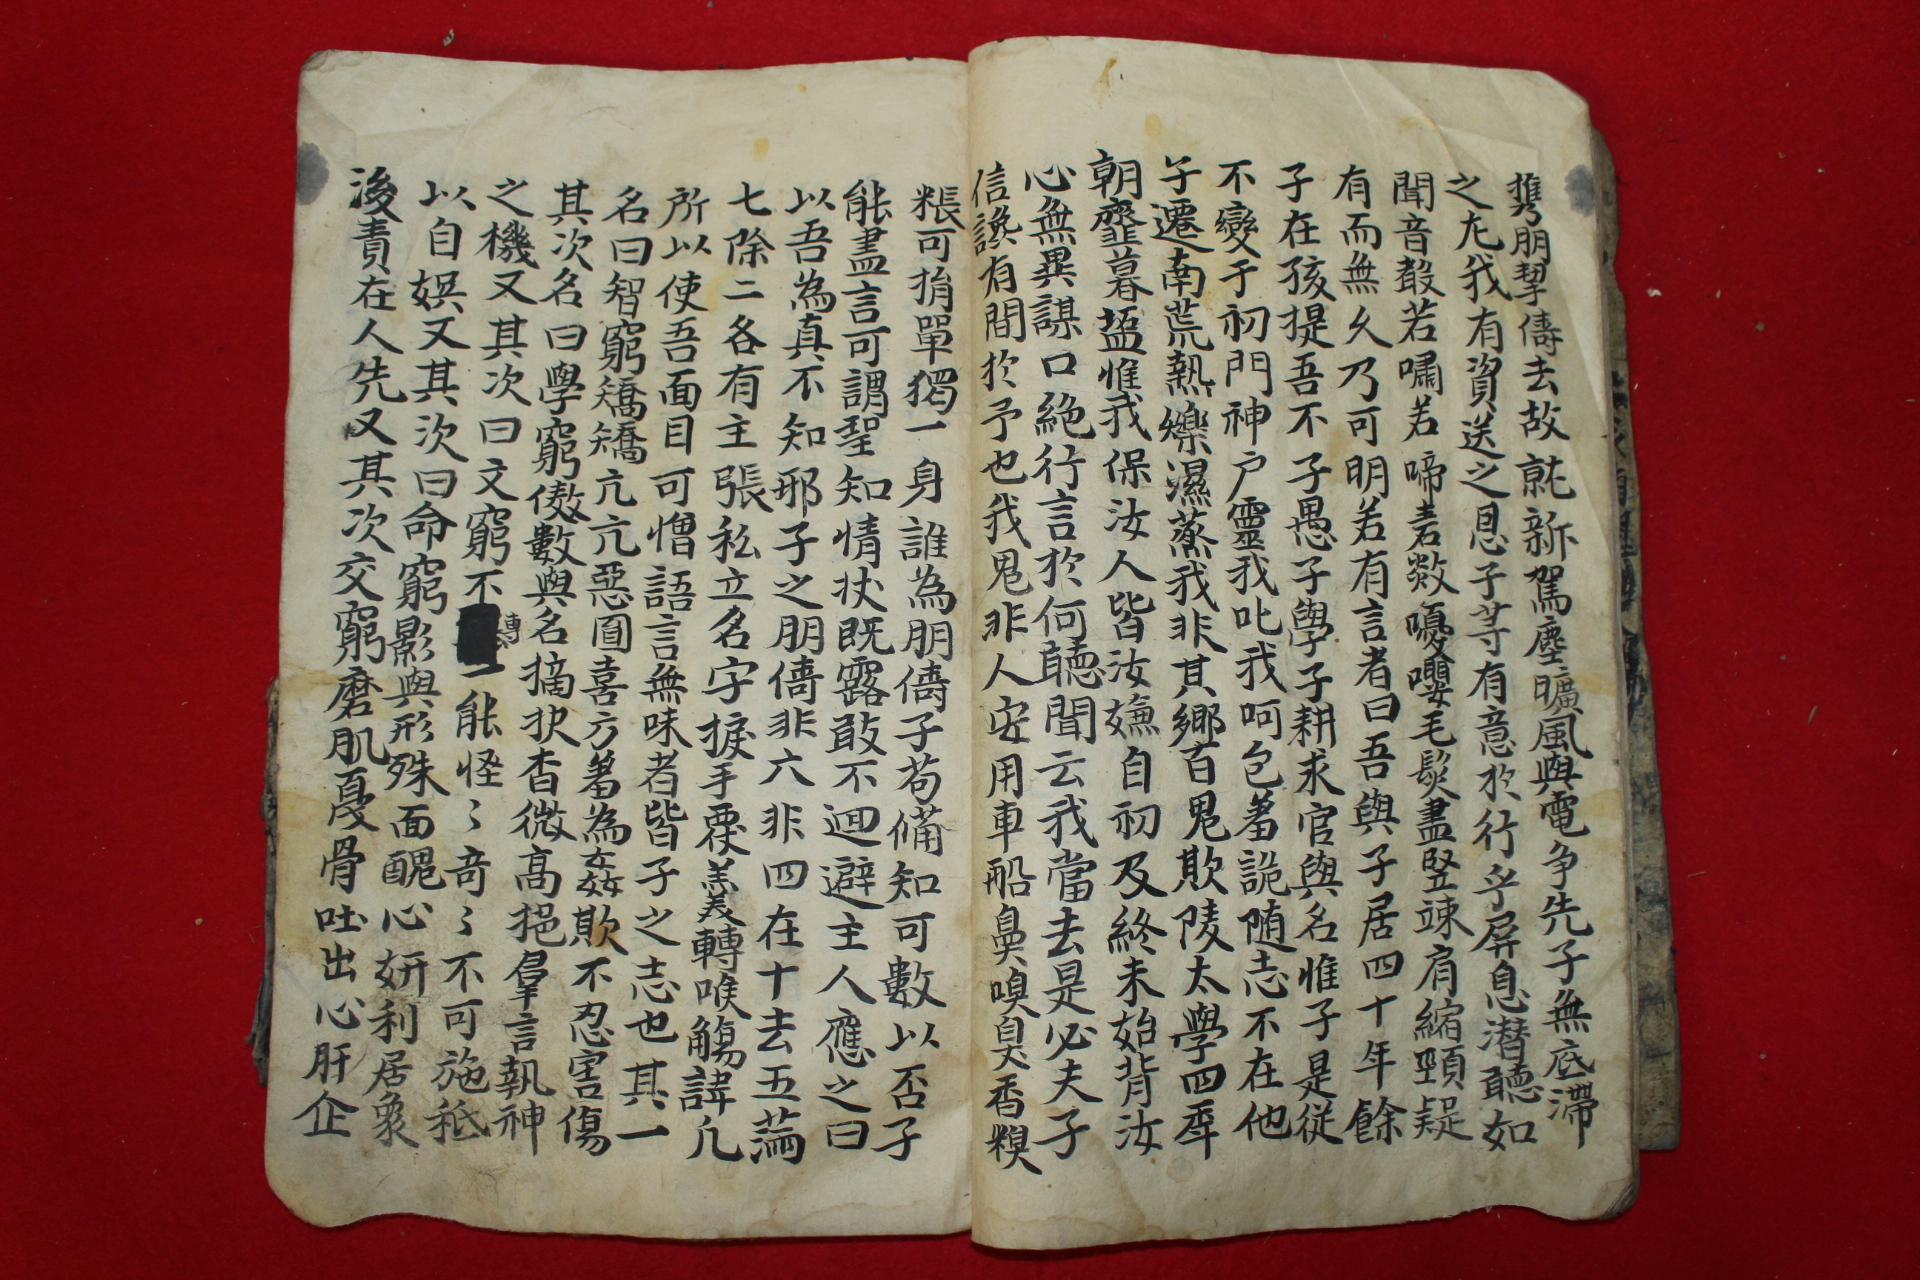 携朋挈儔去故就新駕塵曠風與電争先子無底滯
之尤我有資送之恩子等有意於行乎屏息潜聽如
聞音聲若嘯若啼若欻嚘嚶毛髮盡竪竦肩縮頸疑
有而無久乃可明若有言者曰吾與子居四十年餘
子在孩提吾不子愚子學子耕求官與名惟子是従
不變于初門神户靈我叱我呵包羞詭随志不在他
子遷南荒熱爍濕蒸我非其鄉百鬼欺陵太學四年
朝虀暮塩惟我保汝人皆汝嫌自初及終未始背汝
心無異謀口絶行言於何聽聞云我當去是必夫子
信讒有間於予也我鬼非人安用車船鼻嗅臭香糗
粻可捐單獨一身誰為朋儔子苟備知可數以否子
能盡言可謂聖知情状既露敢不迴避主人應之曰
以吾為真不知耶子之朋儔非六非四在十去五滿
七除二各有主張私立名字捩手覆羹轉喉觸諱凢
所以使吾面目可憎語言無味者皆子之志也其一
名曰智窮矯矯亢亢惡圓喜方羞為姦欺不忍害傷
其次名曰學窮傲數與名摘抉杳微高挹羣言執神
之機又其次曰文窮不專一能怪〻竒〻不可施秪
以自娱又其次曰命窮影與形殊面醜心妍利居衆
後責在人先又其次交窮磨肌戛骨吐出心肝企